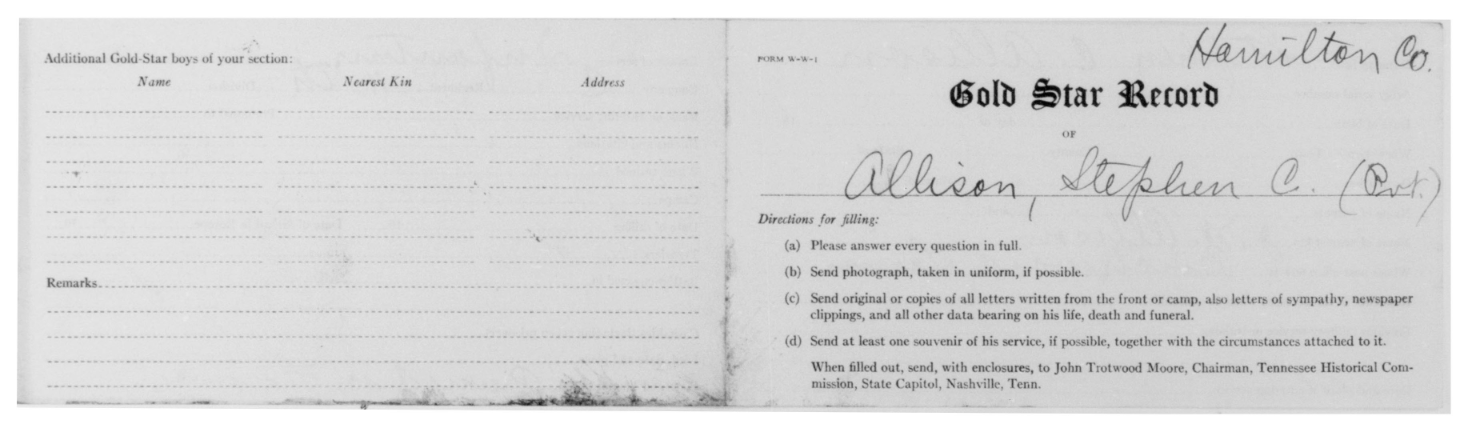 Additional Gold-Star boys of your section:
Name Nearest Kin Address
Remarks
FORM W-W-1
Hamilton Co.
Gold Star Record
OF
Allison, Stephen C. (Pvt.)
Directions for filling:
(a) Please answer every question in full.
(b) Send photograph, taken in uniform, if possible.
(c) Send original or copies of all letters written from the front or camp, also letters of sympathy, newspaper
clippings, and all other data bearing on his life, death and funeral.
(d) Send at least one souvenir of his service, if possible, together with the circumstances attached to it.
When filled out, send, with enclosures, to John Trotwood Moore, Chairman, Tennessee Historical Com-
mission, State Capitol, Nashville, Tenn.